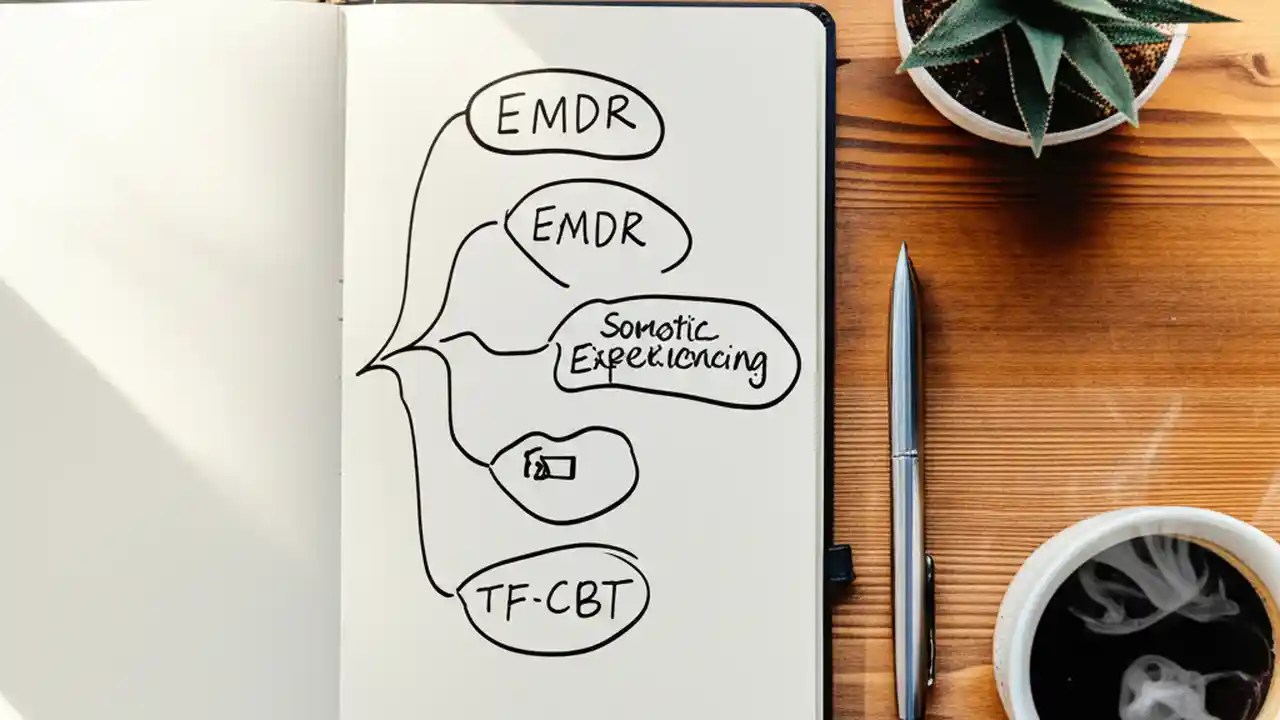 EMDR
EMDR
Somatic
Experiencing
TF-CBT